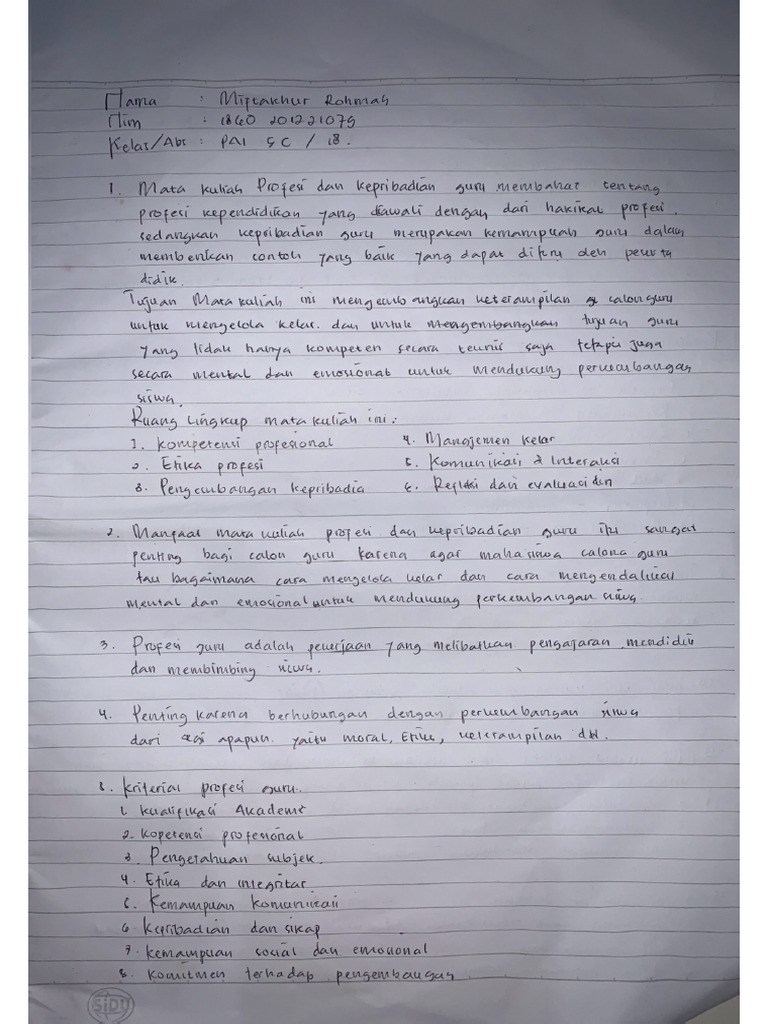 Nama : Miftakhur Rohmah
Nim : 1860 201221075
Kelas/Abs : PAI 5C / 18.
1. Mata kuliah Profesi dan kepribadian guru membahas tentang
profesi kependidikan yang diawali dengan dari hakikat profesi.
sedangkan kepribadian guru merupakan kemampuan guru dalam
memberikan contoh yang baik yang dapat ditiru oleh peserta
didik.
Tujuan Mata kuliah ini mengembangkan keterampilan calon guru
untuk mengelola kelas. dan untuk mengembangkan tujuan guru
yang tidak hanya kompeten secara teknis saja tetapi juga
secara mental dan emosional untuk mendukung perkembangan
siswa.
Ruang Lingkup mata kuliah ini :
1. Kompetensi profesional 4. Manajemen kelas
2. Etika profesi 5. Komunikasi & Interaksi
3. Pengembangan kepribadia 6. Refleksi dan evaluasi diri
2. Manfaat mata kuliah profesi dan kepribadian guru itu sangat
penting bagi calon guru karena agar mahasiswa calona guru
tau bagaimana cara mengelola kelas dan cara mengendalikan
mental dan emosional untuk mendukung perkembangan siswa.
3. Profesi guru adalah pekerjaan yang melibatkan pengajaran, mendidik
dan membimbing siswa.
4. Penting karena berhubungan dengan perkembangan siswa
dari segi apapun. yaitu moral, Etika, keterampilan dll.
5. Kriteriai profesi guru.
1. Kualifikasi Akademi
2. Kopetensi profesional
3. Pengetahuan subjek.
4. Etika dan integritas
5. Kemampuan komunikasi
6 Kepribadian dan sikap
7. Kemampuan sosial dan emosional
8. Komitmen terhadap pengembangan
SiDU